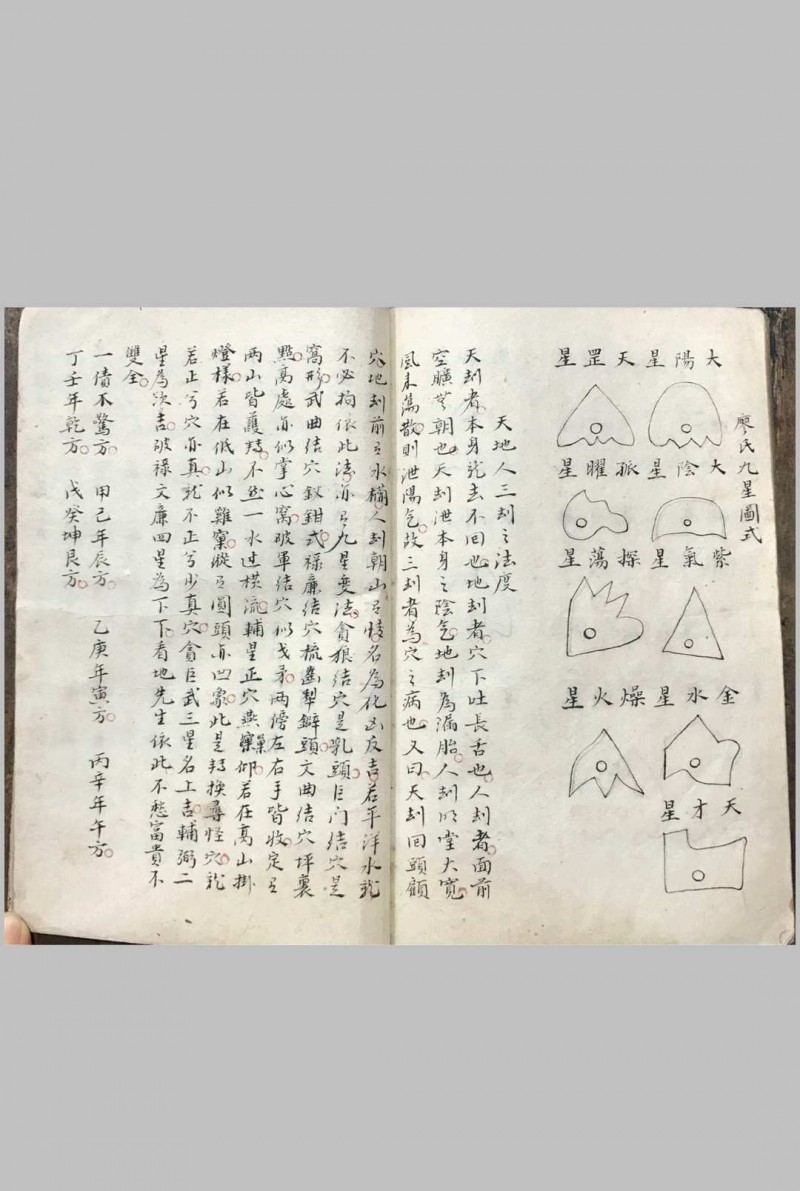 廖氏九星圖式
大陽星
天罡星
大陰星
孤曜星
紫氣星
探蕩星
金水星
燥火星
天才星
天地人三刦之法度
天刦者本身龍去不回也地刦者穴下吐長舌也人刦者面前
空曠無朝也天刦泄本身之陰氣地刦為漏胎人刦明堂大寬
風来蕩散則泄陽氣故三刦者為穴之病也又曰天刦回頭顧
穴地刦前有水攔人刦朝山有情名為化凶反吉若平洋水龍
不必拘依此法亦有九星变法貪狼结穴是乳頭巨门结穴是
窩形武曲结穴釵鉗式禄廉结穴梳齒犁鐴頭文曲结穴坪裏
點高處亦似掌心窩破軍结穴似戈矛两傍左右手皆收定有
两山皆護轉不然一水过横流輔星正穴燕窠仰若在高山掛
燈様若在低山似雞窠縱有圓頭亦凹象此是轉换尋怪穴龍
若正兮穴亦真龍不正兮少真穴貪巨武三星名上吉輔弼二
星為次吉破禄文廉四星為下下看地先生依此不愁富貴不
雙全
一债不驚方 甲己年辰方 乙庚年寅方 丙辛年午方
丁壬年乾方 戊癸坤艮方